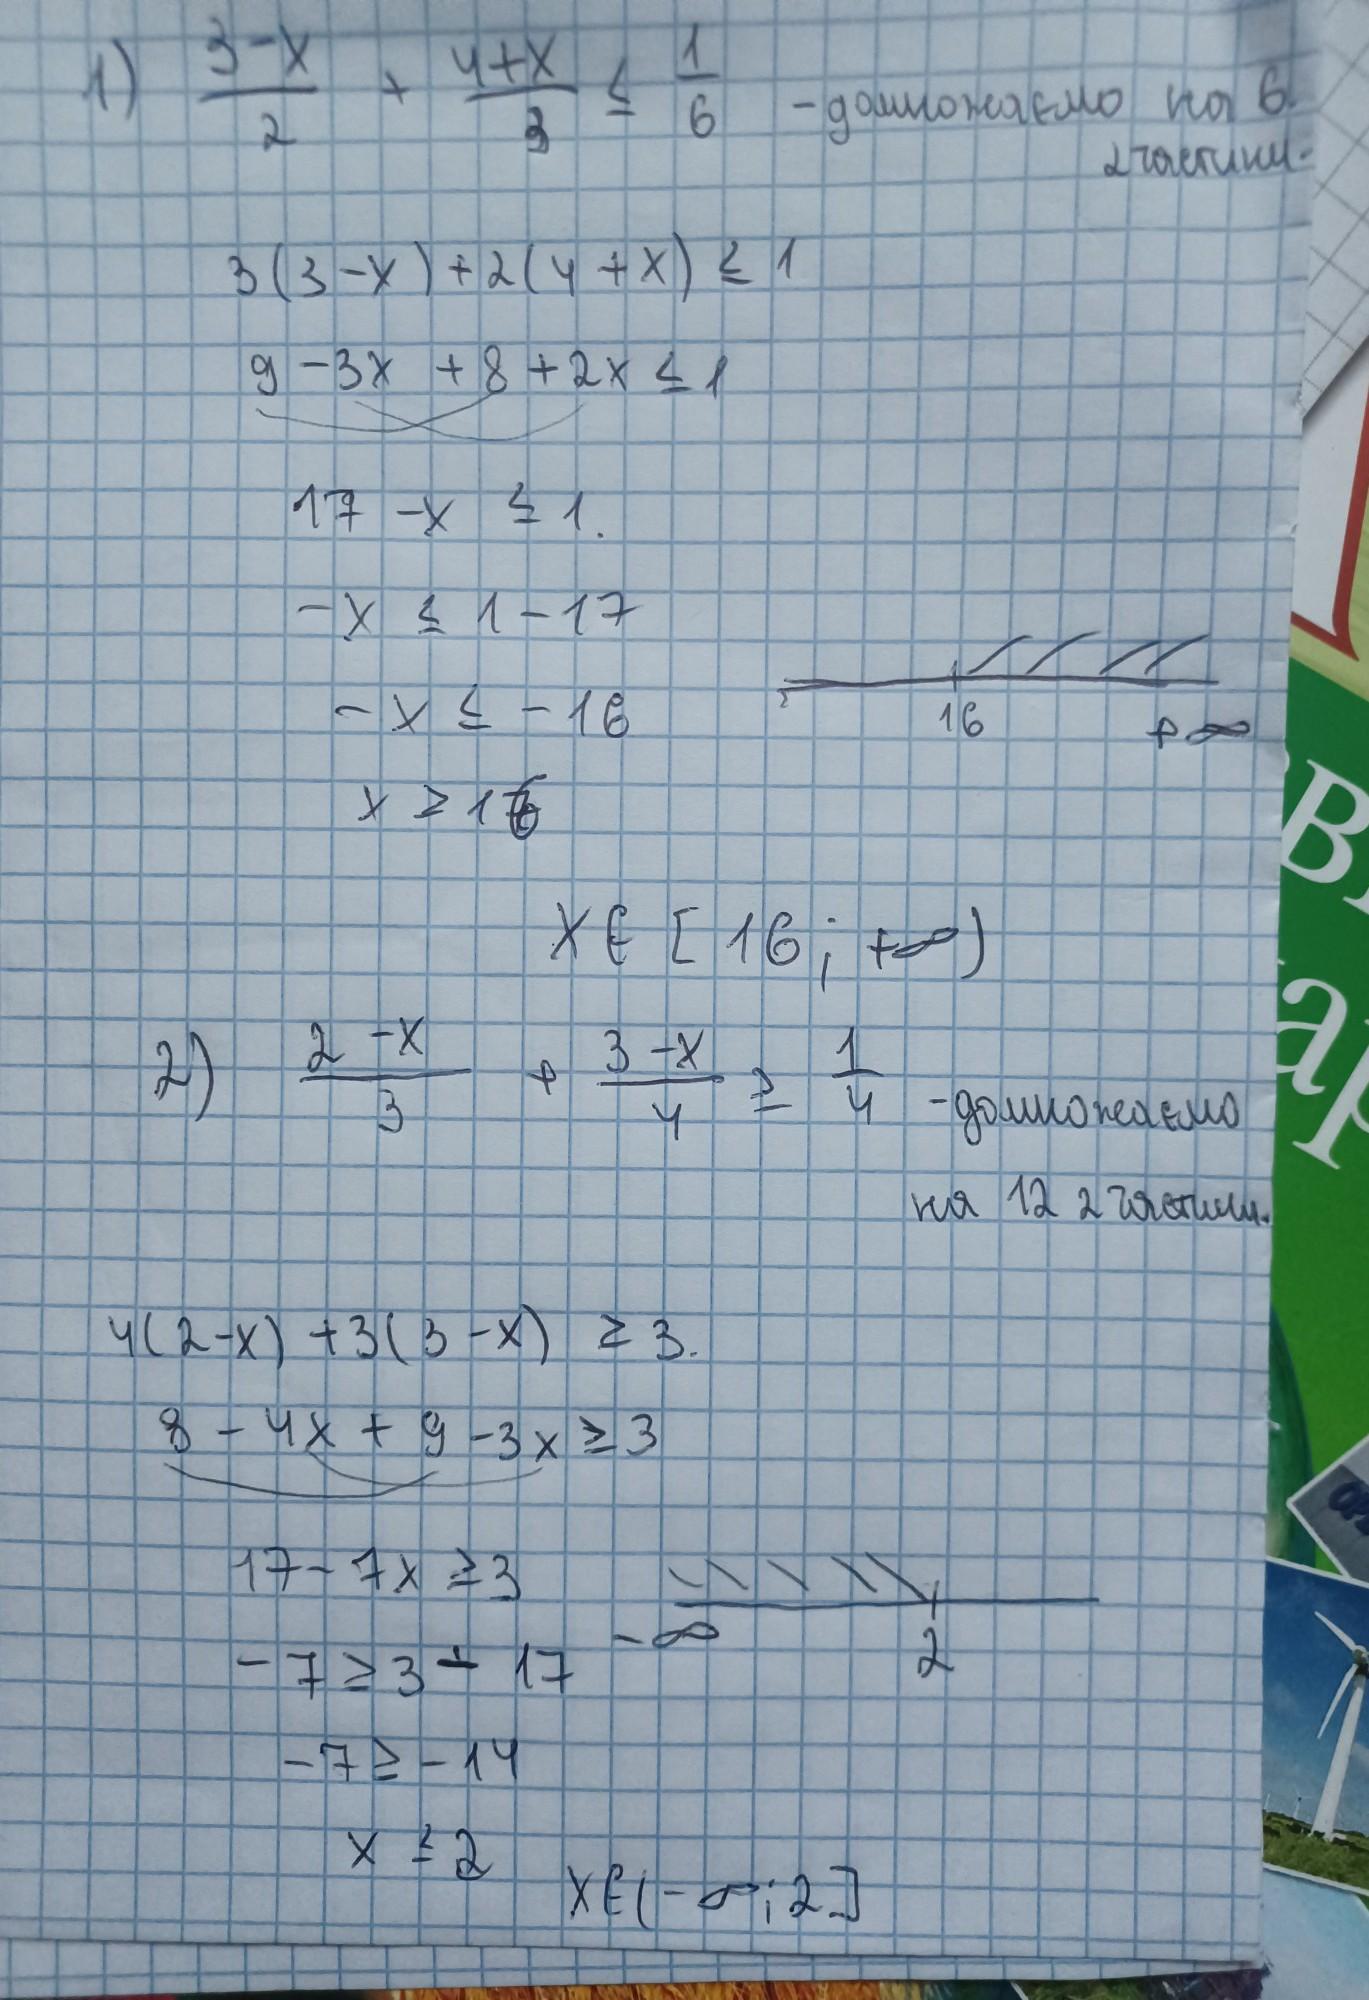 1) \frac{3-x}{2} + \frac{4+x}{3} ≤ \frac{1}{6} - домножаємо на 6
2 частини.
3(3-x)+2(4+x) ≤ 1
9-3x+8+2x ≤ 1
17-x ≤ 1.
-x ≤ 1-17
-x ≤ -16
16 +∞
x ≥ 16
x∈[16;+∞)
2) \frac{2-x}{3} + \frac{3-x}{4} ≥ \frac{1}{4} - домножаємо
на 12 2 частини.
4(2-x)+3(3-x) ≥ 3.
8-4x+9-3x ≥ 3
17-7x ≥ 3
-∞ 2
-7 ≥ 3-17
-7 ≥ -14
x ≤ 2
x∈(-∞;2]